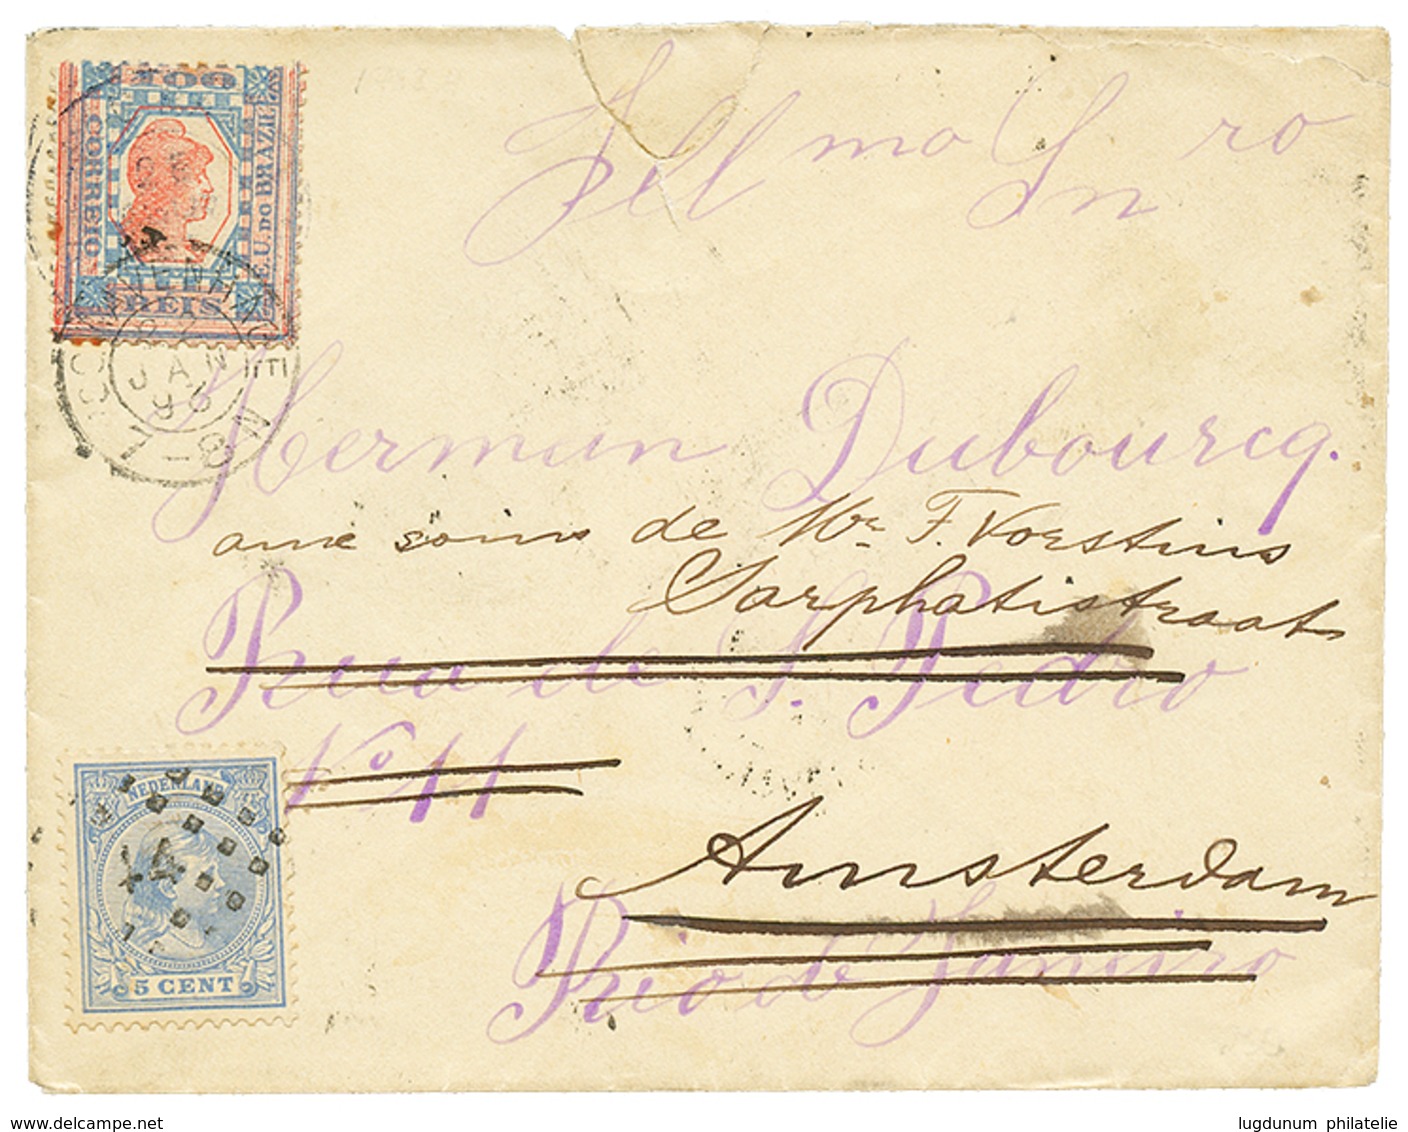 100
CORREIO
E. U. DO BRAZIL
REIS
'S GRAVENHAGE
27
JAN
96
7-8 N
Illmo Snro
Herman Dubourcq.
aux soins de Mr. F. Vorstius
Sarphatistraat
Rua de S. Pedro
No 11
Amsterdam
Rio de Janeiro
NEDERLAND
5 CENT
www.delcampe.net
lugdunum philatelie